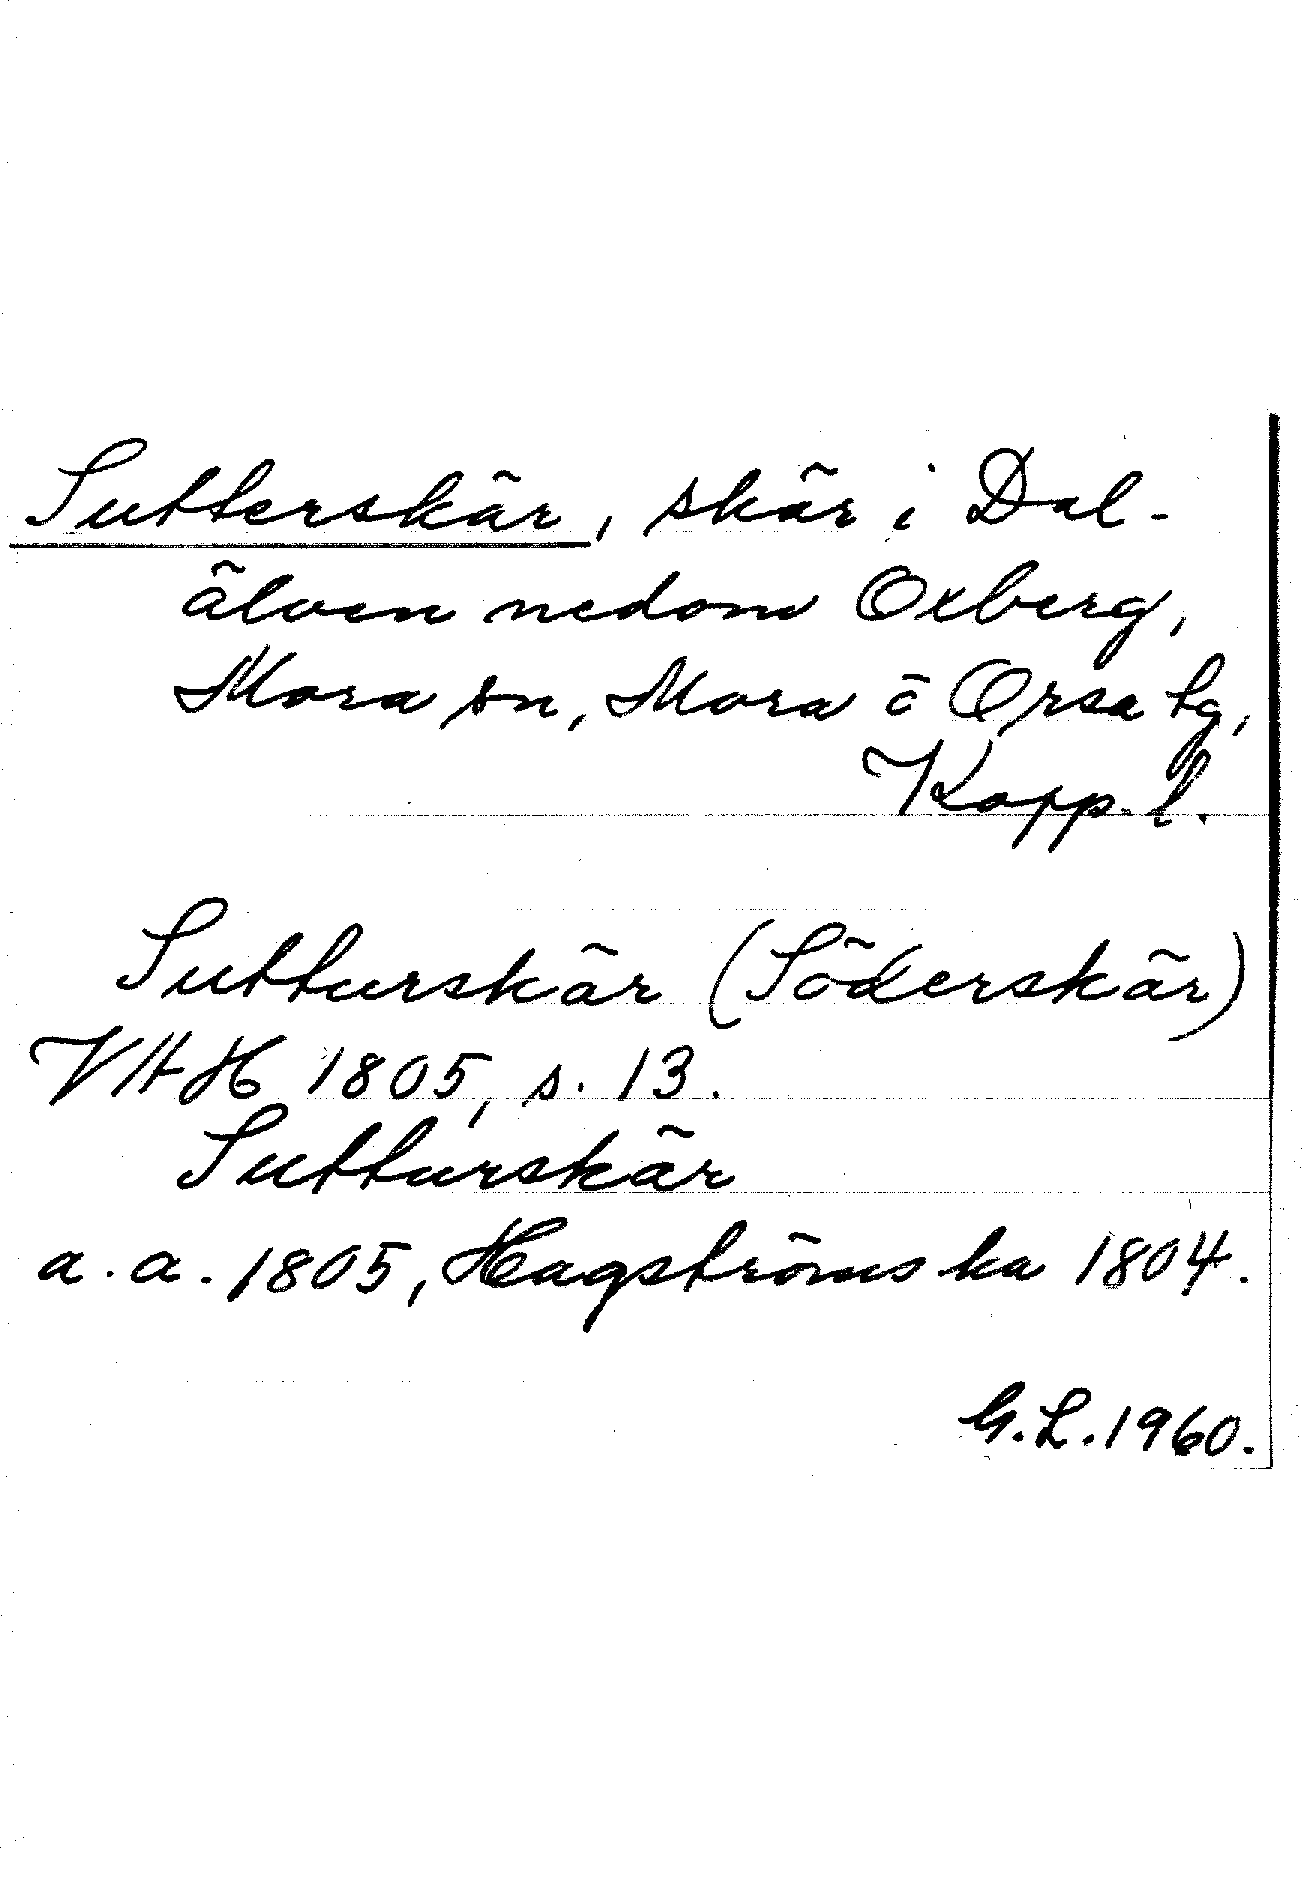 Sutterskär, skär i Dal-
älven nedom Oxberg,
Mora sn, Mora o Orsa tg,
Kopp. l.
Sutturskär (Söderskär)
VHH 1805, s. 13.
Sutturskär
a. a. 1805, Hagströmska 1804.
G. L. 1960.